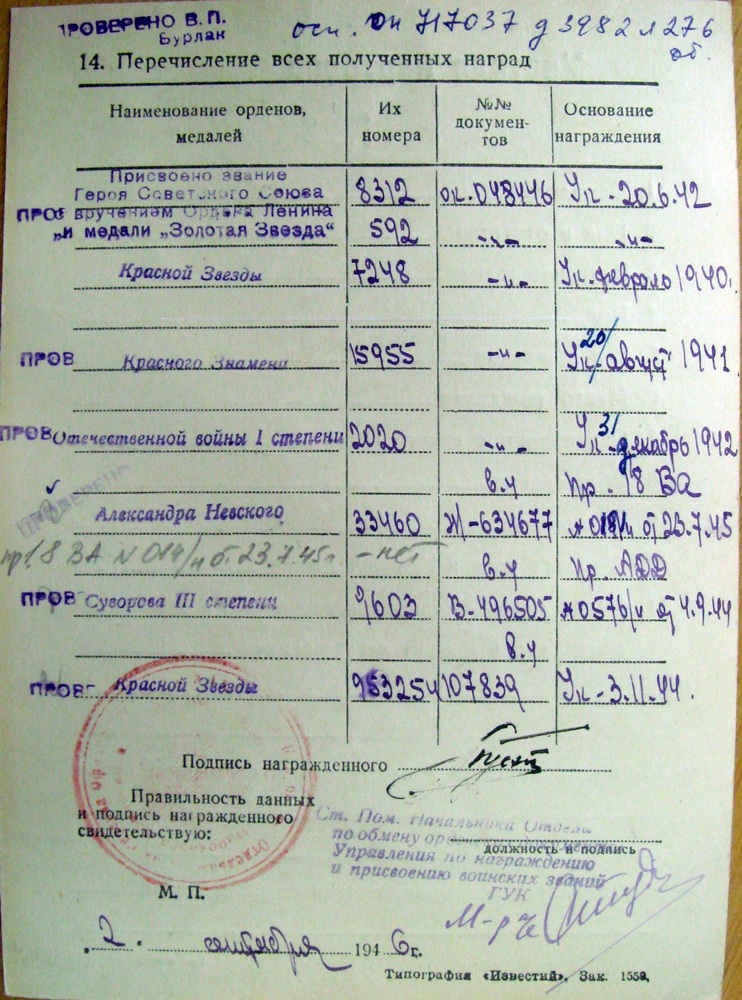 ПРОВЕРЕНО В. П.
Бурлак
осн. оп 717037 д 3982 л 276
об.
14. Перечисление всех полученных наград
Наименование орденов, медалей
Их номера
№№ докумен-тов
Основание награждения
Присвоено звание
Героя Советского Союза 8312 ок. 048446 Ук - 20.6.42
ПРОВ с вручением Ордена Ленина
„и медали „Золотая Звезда“ 592 -„- -„-
Красной Звезды 7248 -„- Ук. февраль 1940.
20/
ПРОВ Красного Знамени 15955 -„- Ук август 1941
31
ПРОВ Отечественной войны I степени 2020 -„- Ук декабрь 1942
ПРОВЕРЕНО в.у Пр. 18 ВА
Александра Невского 33460 Ж-634677 №019/н от 23.7.45
пр 18 ВА N 019/н от 23.7.45г. - нет в.у Пр. АДД
ПРОВ Суворова III степени 9603 В-496505 №0576/н от 4.9.44
в.у
ПРОВ Красной Звезды 953254 107839 Ук - 3.11.44.
Подпись награжденного
Правильность данных
и подпись награжденного
свидетельствую:
Ст. Пом. Начальника Отдела
по обмену
должность и подпись
Управления по награждению
и присвоению воинских званий
ГУК
М-р
М. П.
2. сентября 1946 г.
Типография «Известий». Зак. 1559.